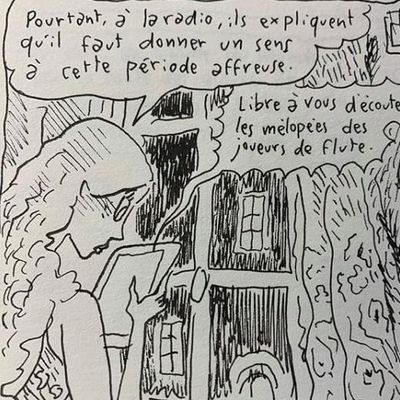 Pourtant, à la radio, ils expliquent
qu'il faut donner un sens
à cette période affreuse.
Libre à vous d'écoute
les mélopées des
joueurs de flute.